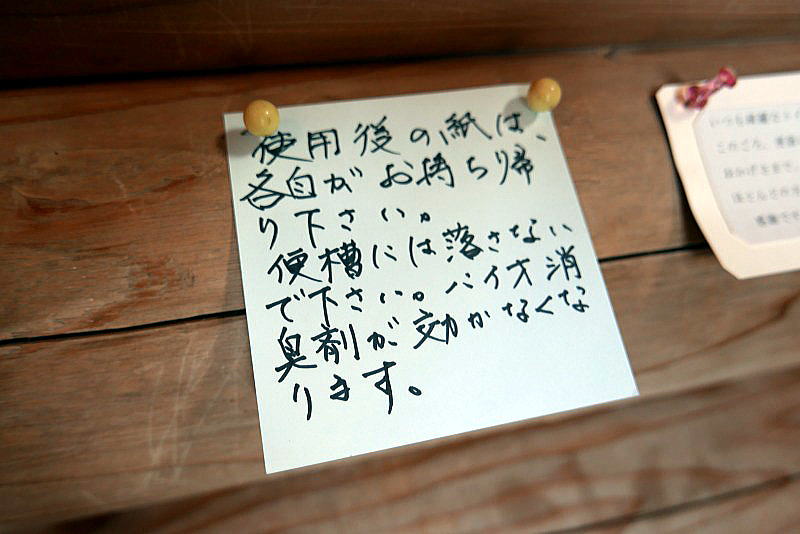 使用後の紙は、
各自がお持ちり帰
り下さい。
便槽には落さない
で下さい。バイオ消
臭剤が効かなくな
ります。
いつも綺麗に
このごろ、
おかげさまで、
ほとんど
感謝